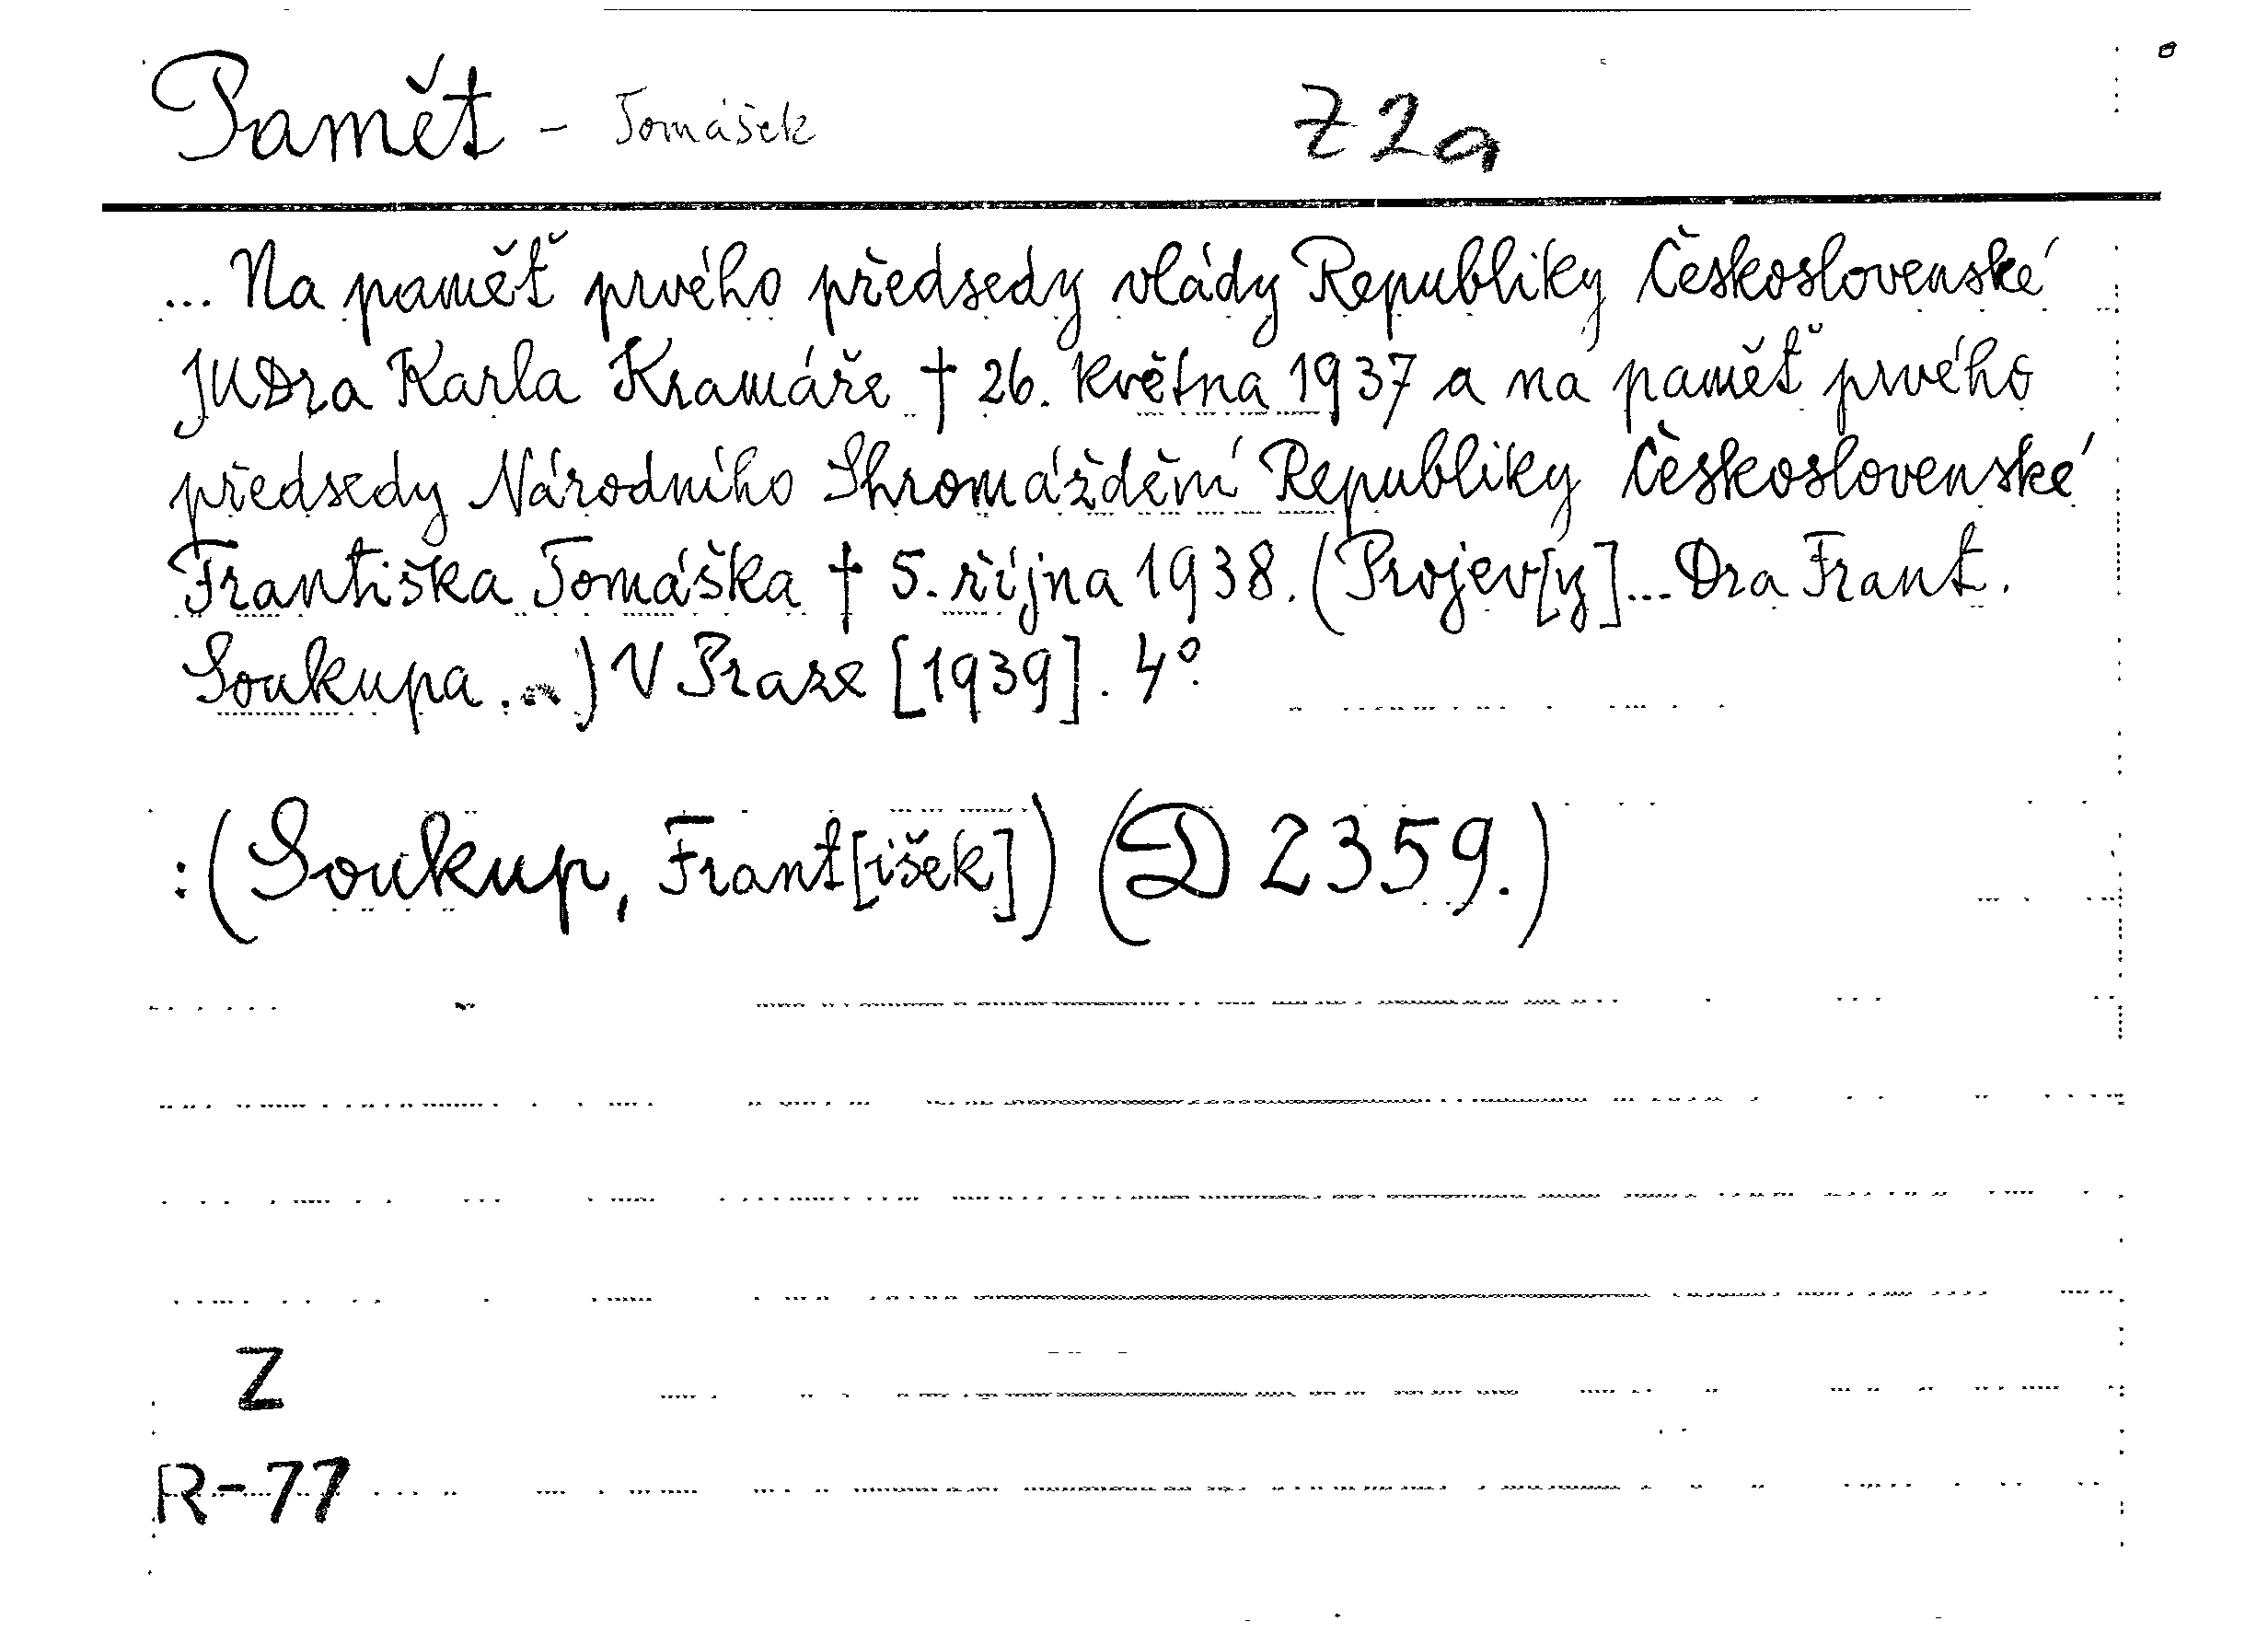 Pamět - Tomášek Z2a
... Na paměť prvého předsedy vlády Republiky Československé
JUDra Karla Kramáře † 26. května 1937 a na paměť prvého
předsedy Národního Shromáždění Republiky Československé
Františka Tomáška † 5. října 1938. (Projev[y]... Dra Frant.
Soukupa ...) V Praze [1939]. 4°.
:(Soukup, Frant[išek]) (D 2359.)
Z
R-77